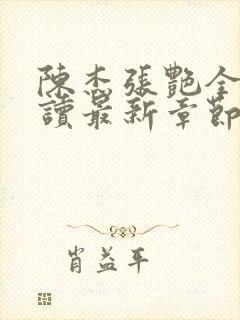 陳杰張艷全
讀最新章節
肖益平